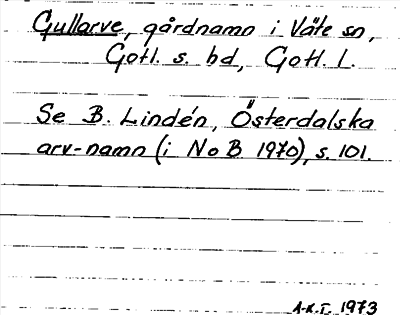 Gullarve, gårdnamn i Väte sn,
Gotl. s. bd, Gotl. l.
Se B. Lindén, Österdalska
arv-namn (i NoB 1970), s. 101.
A-K.T. 1973